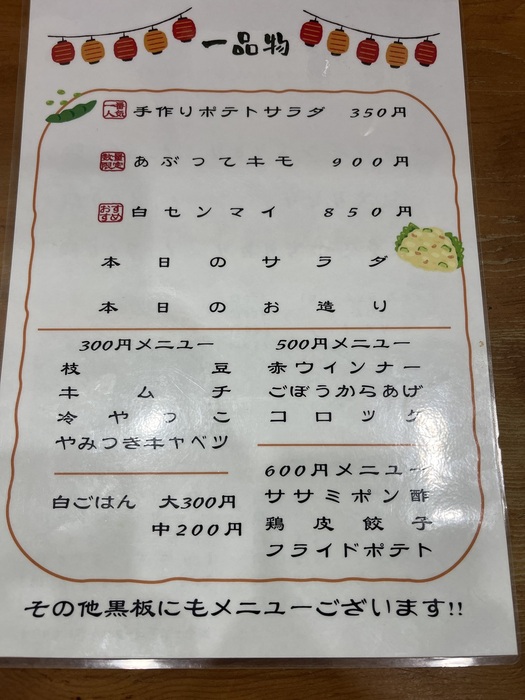 一品物
一番人気 手作りポテトサラダ 350円
数量限定 あぶってキモ 900円
おすすめ 白センマイ 850円
本日のサラダ
本日のお造り
300円メニュー
枝豆
キムチ
冷やっこ
やみつきキャベツ
白ごはん 大300円
中200円
500円メニュー
赤ウインナー
ごぼうからあげ
コロッケ
600円メニュー
ササミポン酢
鶏皮餃子
フライドポテト
その他黒板にもメニューございます!!